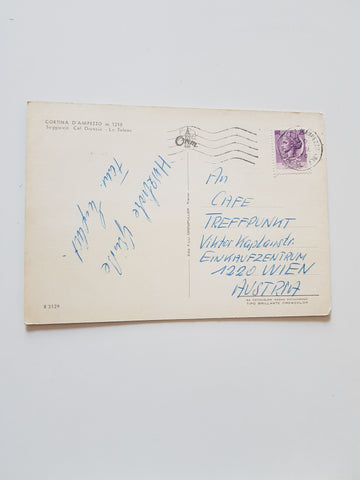 CORTINA D'AMPEZZO m. 1218
Seggiovia Col Drusciè - Le Tofane
Herzliche Grüße
Fam.
An
CAFE
TREFFPUNKT
Viktor Kaplanstr.
EINKAUFZENTRUM
1220 WIEN
AUSTRIA
TIPO BRILLANTE CREMCOLOR